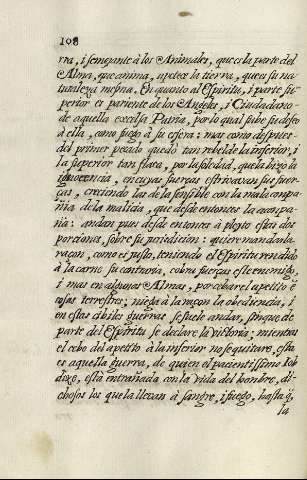 108
rra, i semejante à los Animales, que es la parte del
Alma, que anima, apetece la tierra, que es su na-
turaleza mesma. En quanto al Espiritu, i parte su-
perior es pariente de los Angeles, i Ciudadano
de aquella excelsa Patria, por lo qual sube su deseo
à ella, como fuego à su esfera: mas como despues
del primer pecado quedò tan rebelde la inferior, i
la superior tan flaca, por la soledad, que la hizo la
ignocencia, en cuyas fuerças estrivavan sus fuer-
ças, creciendo las de la sensible con la mala compa-
ñia de la malicia, que desde entonces la acompa-
ña: andan pues desde entonces à pleyto estas dos
porciones, sobre su jurisdicion: quiere mandar la
raçon, como es justo, teniendo el Espiritu rendido
à la carne su contraria, cobra fuerças este enemigo,
i mas en algunas Almas, por cebar el apetito ẽ
cosas terrestres; niega à la raçon la obediencia, i
en estas cibiles guerras se suele andar, sin que de
parte del Espiritu se declare la victoria; mientras
el cebo del apetito à la inferior no se quitare, esta
es aquella guerra, de quien el pacientissimo Iob
dixo, està entrañada con la vida del hombre, di-
chosos los que la llevan à sangre, i fuego, hasta q̃
la